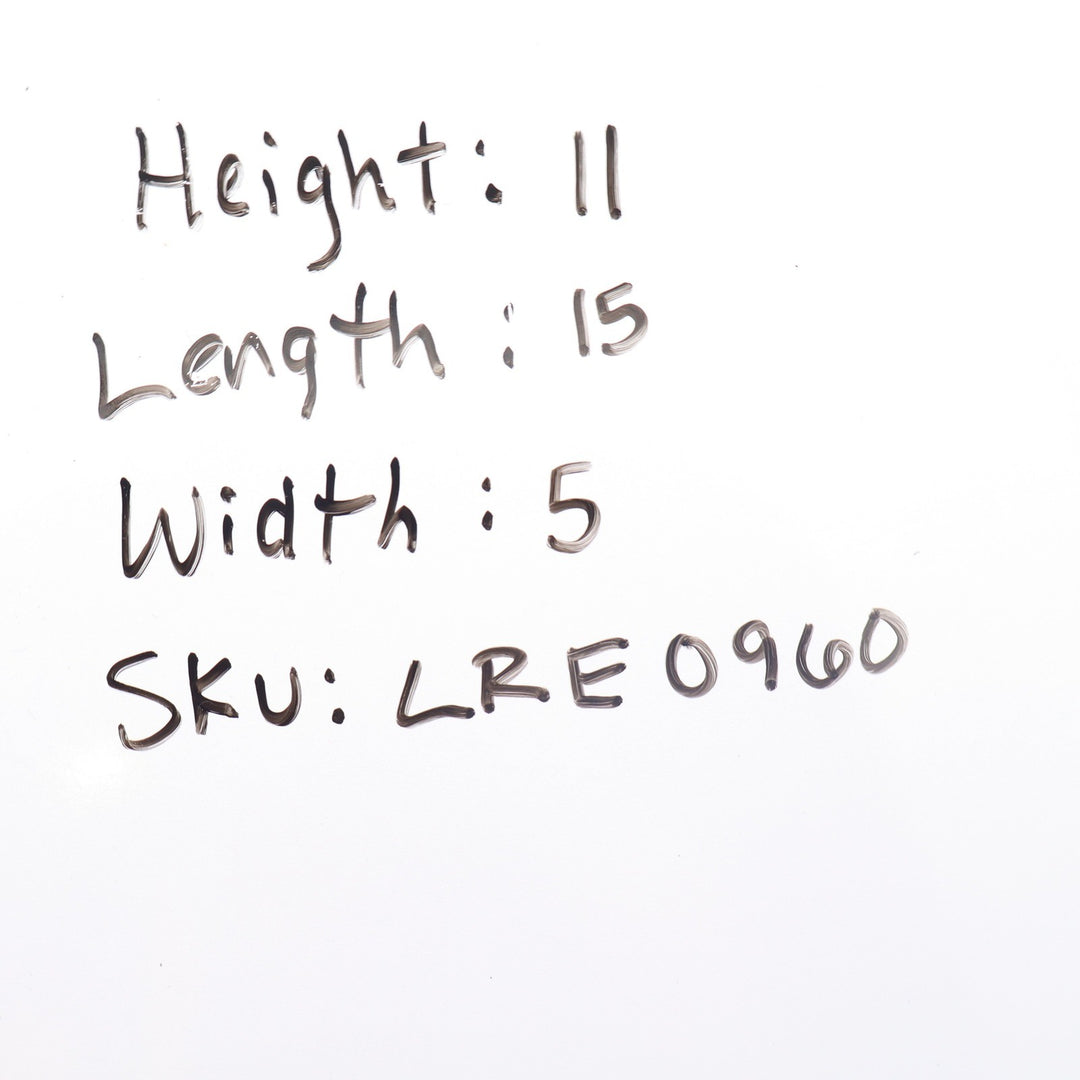 Height: 11
Length: 15
Width: 5
SKU: LRE0960